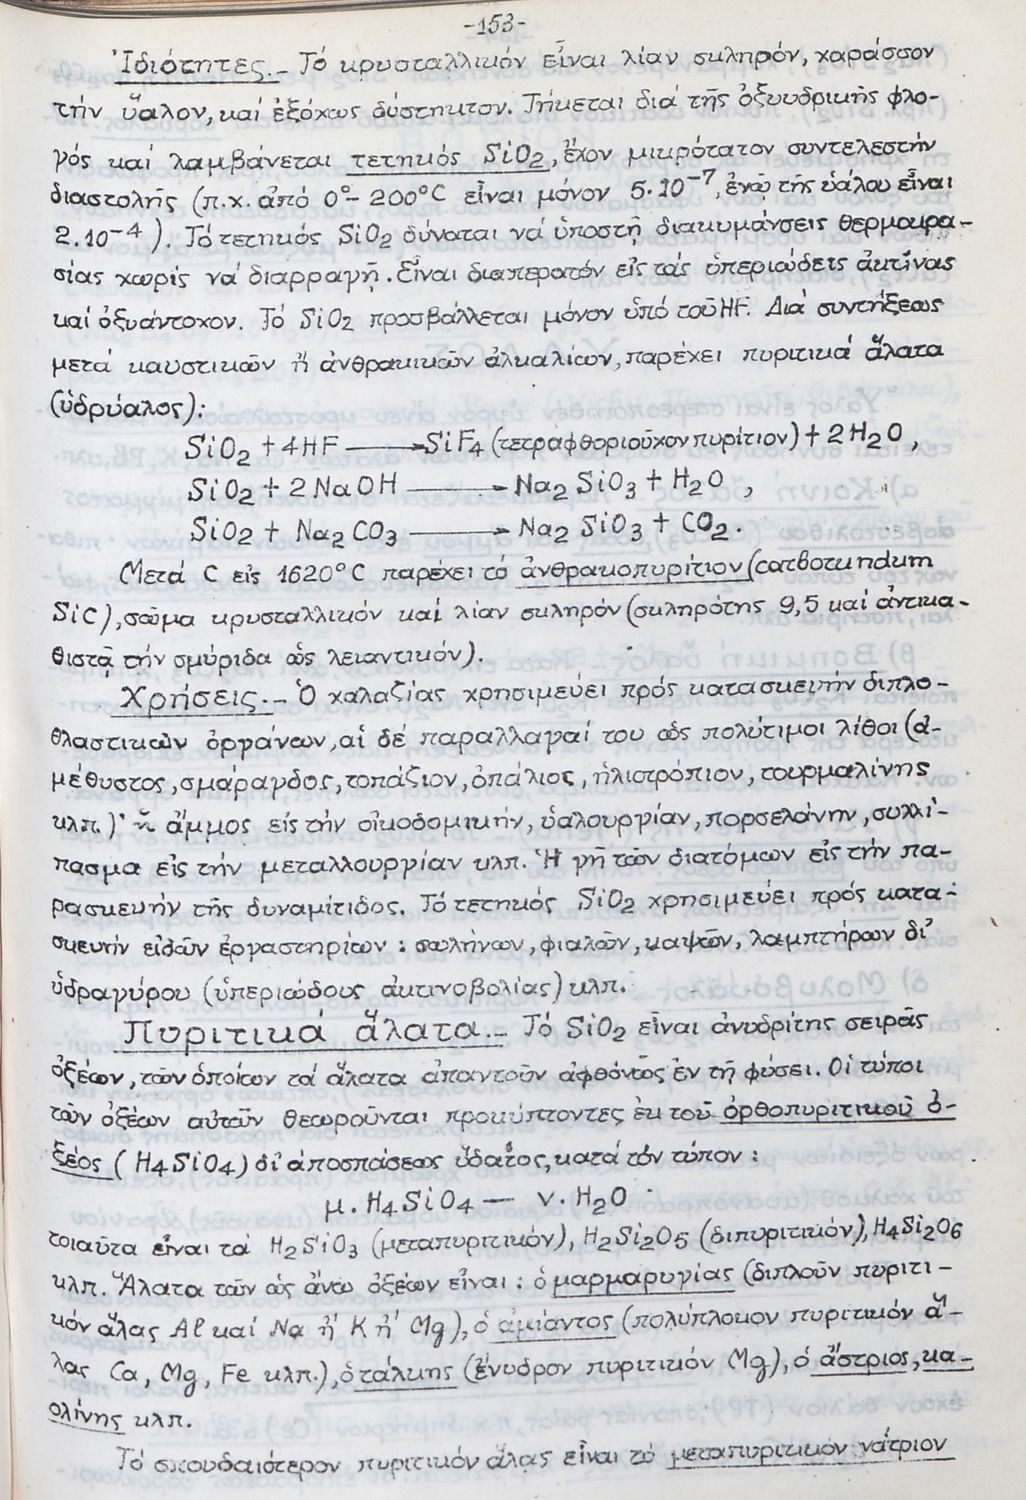 -153-
Ἰδιότητες.- Τό κρυσταλλικόν εἶναι λίαν σκληρόν, χαράσσον
τήν ὕαλον, καί ἐξόχως δύστηκτον. Τήκεται διά τῆς ὀξυυδρικῆς φλο-
γός καί λαμβάνεται τετηκός SiO2, ἔχον μικρότατον συντελεστήν
διαστολῆς (π.χ. ἀπό 0°- 200°C εἶναι μόνον 5.10⁻⁷, ἐνῷ τῆς ὑάλου εἶναι
2.10⁻⁴). Τό τετηκός SiO2 δύναται νά ὑποστῇ διακυμάνσεις θερμοκρα-
σίας χωρίς νά διαρραγῇ. Εἶναι διαπερατόν εἰς τάς ὑπεριώδεις ἀκτῖνας
καί ὀξυάντοχον. Τό SiO2 προσβάλλεται μόνον ὑπό τοῦ HF. Διά συντήξεως
μετά καυστικῶν ἤ ἀνθρακικῶν ἀλκαλίων, παρέχει πυριτικά ἅλατα
(ὑδρύαλος):
SiO2 + 4HF ⟶ SiF4 (τετραφθοριοῦχον πυρίτιον) + 2H2O,
SiO2 + 2NaOH ⟶ Na2SiO3 + H2O,
SiO2 + Na2CO3 ⟶ Na2SiO3 + CO2.
Μετά C εἰς 1620°C παρέχει τό ἀνθρακοπυρίτιον (carborundum
SiC), σῶμα κρυσταλλικόν καί λίαν σκληρόν (σκληρότης 9,5 καί ἀντικα-
θιστᾷ τήν σμύριδα ὡς λειαντικόν).
Χρήσεις.- Ὁ χαλαζίας χρησιμεύει πρός κατασκευήν διπλο-
θλαστικῶν ὀργάνων, αἱ δέ παραλλαγαί του ὡς πολύτιμοι λίθοι (ἀ-
μέθυστος, σμάραγδος, τοπάζιον, ὀπάλιος, ἡλιοτρόπιον, τουρμαλίνης
κλπ.)· ἡ ἄμμος εἰς τήν οἰκοδομικήν, ὑαλουργίαν, πορσελάνην, συλλί-
πασμα εἰς τήν μεταλλουργίαν κλπ. Ἡ γῆ τῶν διατόμων εἰς τήν πα-
ρασκευήν τῆς δυναμίτιδος. Τό τετηκός SiO2 χρησιμεύει πρός κατα-
σκευήν εἰδῶν ἐργαστηρίων: σωλήνων, φιαλῶν, καψῶν, λαμπτήρων δι'
ὑδραγύρου (ὑπεριώδους ἀκτινοβολίας) κλπ.
Πυριτικά ἅλατα.- Τό SiO2 εἶναι ἀνυδρίτης σειρᾶς
ὀξέων, τῶν ὁποίων τά ἅλατα ἀπαντοῦν ἀφθόνως ἐν τῇ φύσει. Οἱ τύποι
τῶν ὀξέων αὐτῶν θεωροῦνται προκύπτοντες ἐκ τοῦ ὀρθοπυριτικοῦ ὀ-
ξέος (H4SiO4) δι' ἀποσπάσεως ὕδατος, κατά τόν τύπον:
μ. H4SiO4 — ν. H2O
τοιαῦτα εἶναι τά H2SiO3 (μεταπυριτικόν), H2Si2O5 (διπυριτικόν), H4Si2O6
κλπ. Ἅλατα τῶν ὡς ἄνω ὀξέων εἶναι: ὁ μαρμαρυγίας (διπλοῦν πυριτι-
κόν ἅλας Al καί Na ἤ K ἤ Mg), ὁ ἀμίαντος (πολύπλοκον πυριτικόν ἅ-
λας Ca, Mg, Fe κλπ.), ὁ τάλκης (ἔνυδρον πυριτικόν Mg), ὁ ἄστριος, κα-
ολίνης κλπ.
Τό σπουδαιότερον πυριτικόν ἅλας εἶναι τό μεταπυριτικόν νάτριον